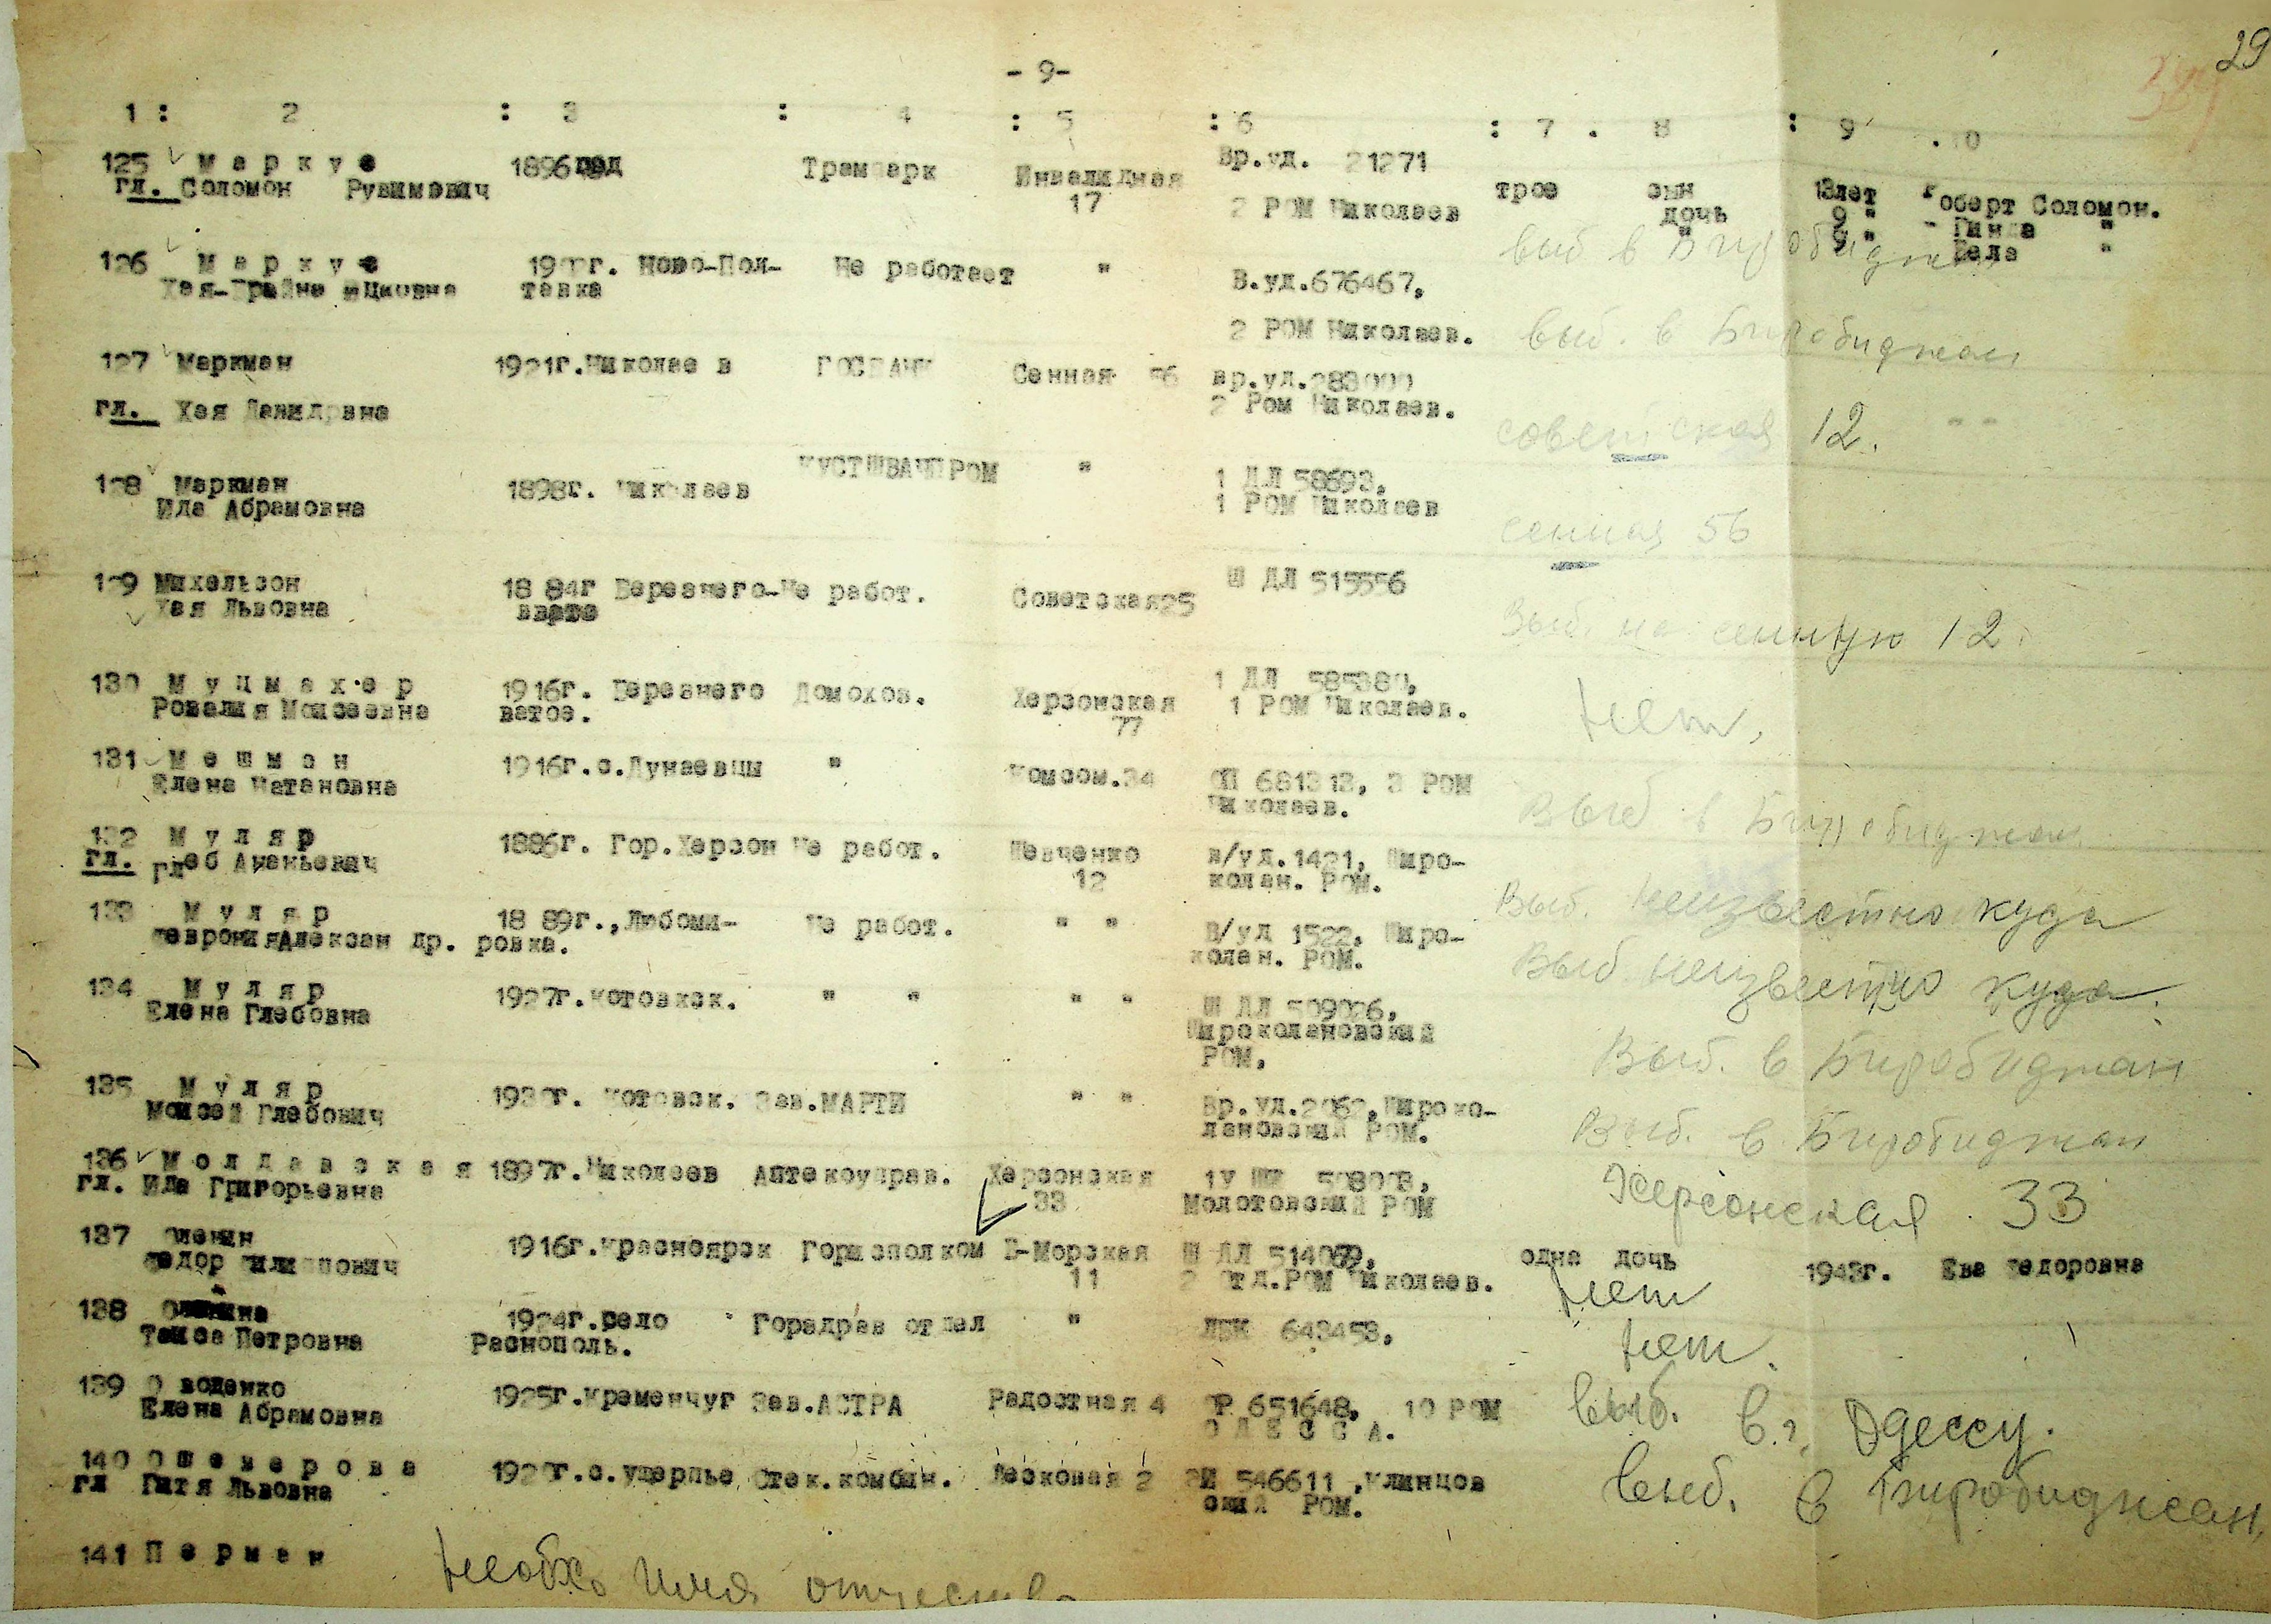 29
- 9-
1 : 2 : 3 : 4 : 5 : 6 : 7 . 8 : 9 . 10
125 М а р к у с 1896 год Трампарк Инвалидная Вр.уд. 21271
гл. Соломон Рувимович 17 2 РОМ Николаев трое сын 13лет Роберт Соломон.
дочь 9 " - Гинда "
" 9 " Бела "
выб в Биробиджан
126 М а р к у с 19 г. Ново-Пол- Не работает " В.уд.676467,
тавка
2 РОМ Николаев. выб. в Биробиджан
127 Маркман 1921г.Николае в Сенная 56 вр.уд.283000
гл. Хая Давидовна 2 Ром Николаев.
советская 12. " "
128 Маркман 1898г. Николаев КУСТШВАЧПРОМ " 1 ДЛ 58693,
Ида Абрамовна 1 РОМ Николаев
сенная 56
129 Михельзон 18 84г Березнего- Не работ. Советская25 Ш ДЛ 515556
Хая Львовна ватое
Выб. на сенную 12.
130 М у ц м а х е р 1916г. Березнего Домохоз. Херсонская 1 ДЛ 585380,
Розалия Моисеевна ватое. 77 1 РОМ Николаев.
нет.
131 М е ш м а н 1916г.с.Дунаевцы " Комсом.34 681313, 3 РОМ
Елена Натановна Николаев.
Выб в Биробиджан
132 М у л я р 1886г. Гор.Херсон Не работ. Шевченко в/уд.1421, Широ-
гл. Глеб Ананьевич 12 колан. РОМ.
Выб. неизвестно куда
133 М у л я р 18 89г.,Любоми- Не работ. " " В/уд 1522, Широ-
Феврония Алексан др. ровка. колан. РОМ.
Выб неизвестно куда.
134 М у л я р 1927г.Котовск. " " " " Ш ДЛ 509026,
Елена Глебовна Широколановский
РОМ.
Выб. в Биробиджан
135 М у л я р 193 г. Котовск. Зав.МАРТИ " " Вр.уд.2062,Широко-
Моисей Глебович лановский РОМ.
Выб. в Биробиджан
136 М о л д а в с к а я 1897г.Николаев Аптекоуправ. Херсонская 1У
гл. Ида Григорьевна 33 Молотовский РОМ
Херсонская 33
137 Оленин 1916г.Красноярск Горисполком В-Морская Ш ДЛ 514069, одна дочь 1943г. Ева Федоровна
Федор Филиппович 11 2 Отд.РОМ Николаев.
нет
138 1924г.село Горздрав отдел " 643453,
Таиса Петровна Раснополь.
нет.
139 О воденко 1925г.Кременчуг Зав.АСТРА Радостная 4 651648, 10 РОМ
Елена Абрамовна О Д Е С С А.
выб. в г. Одессу.
140 О ш е в е р о в а 192 г.с.Ущерпье Стек.комбин. Лесковая 2 546611 ,Клинцов
гл Гитя Львовна ский РОМ.
выб. в Биробиджан,
141 П е р м а н
необх. имя отчество